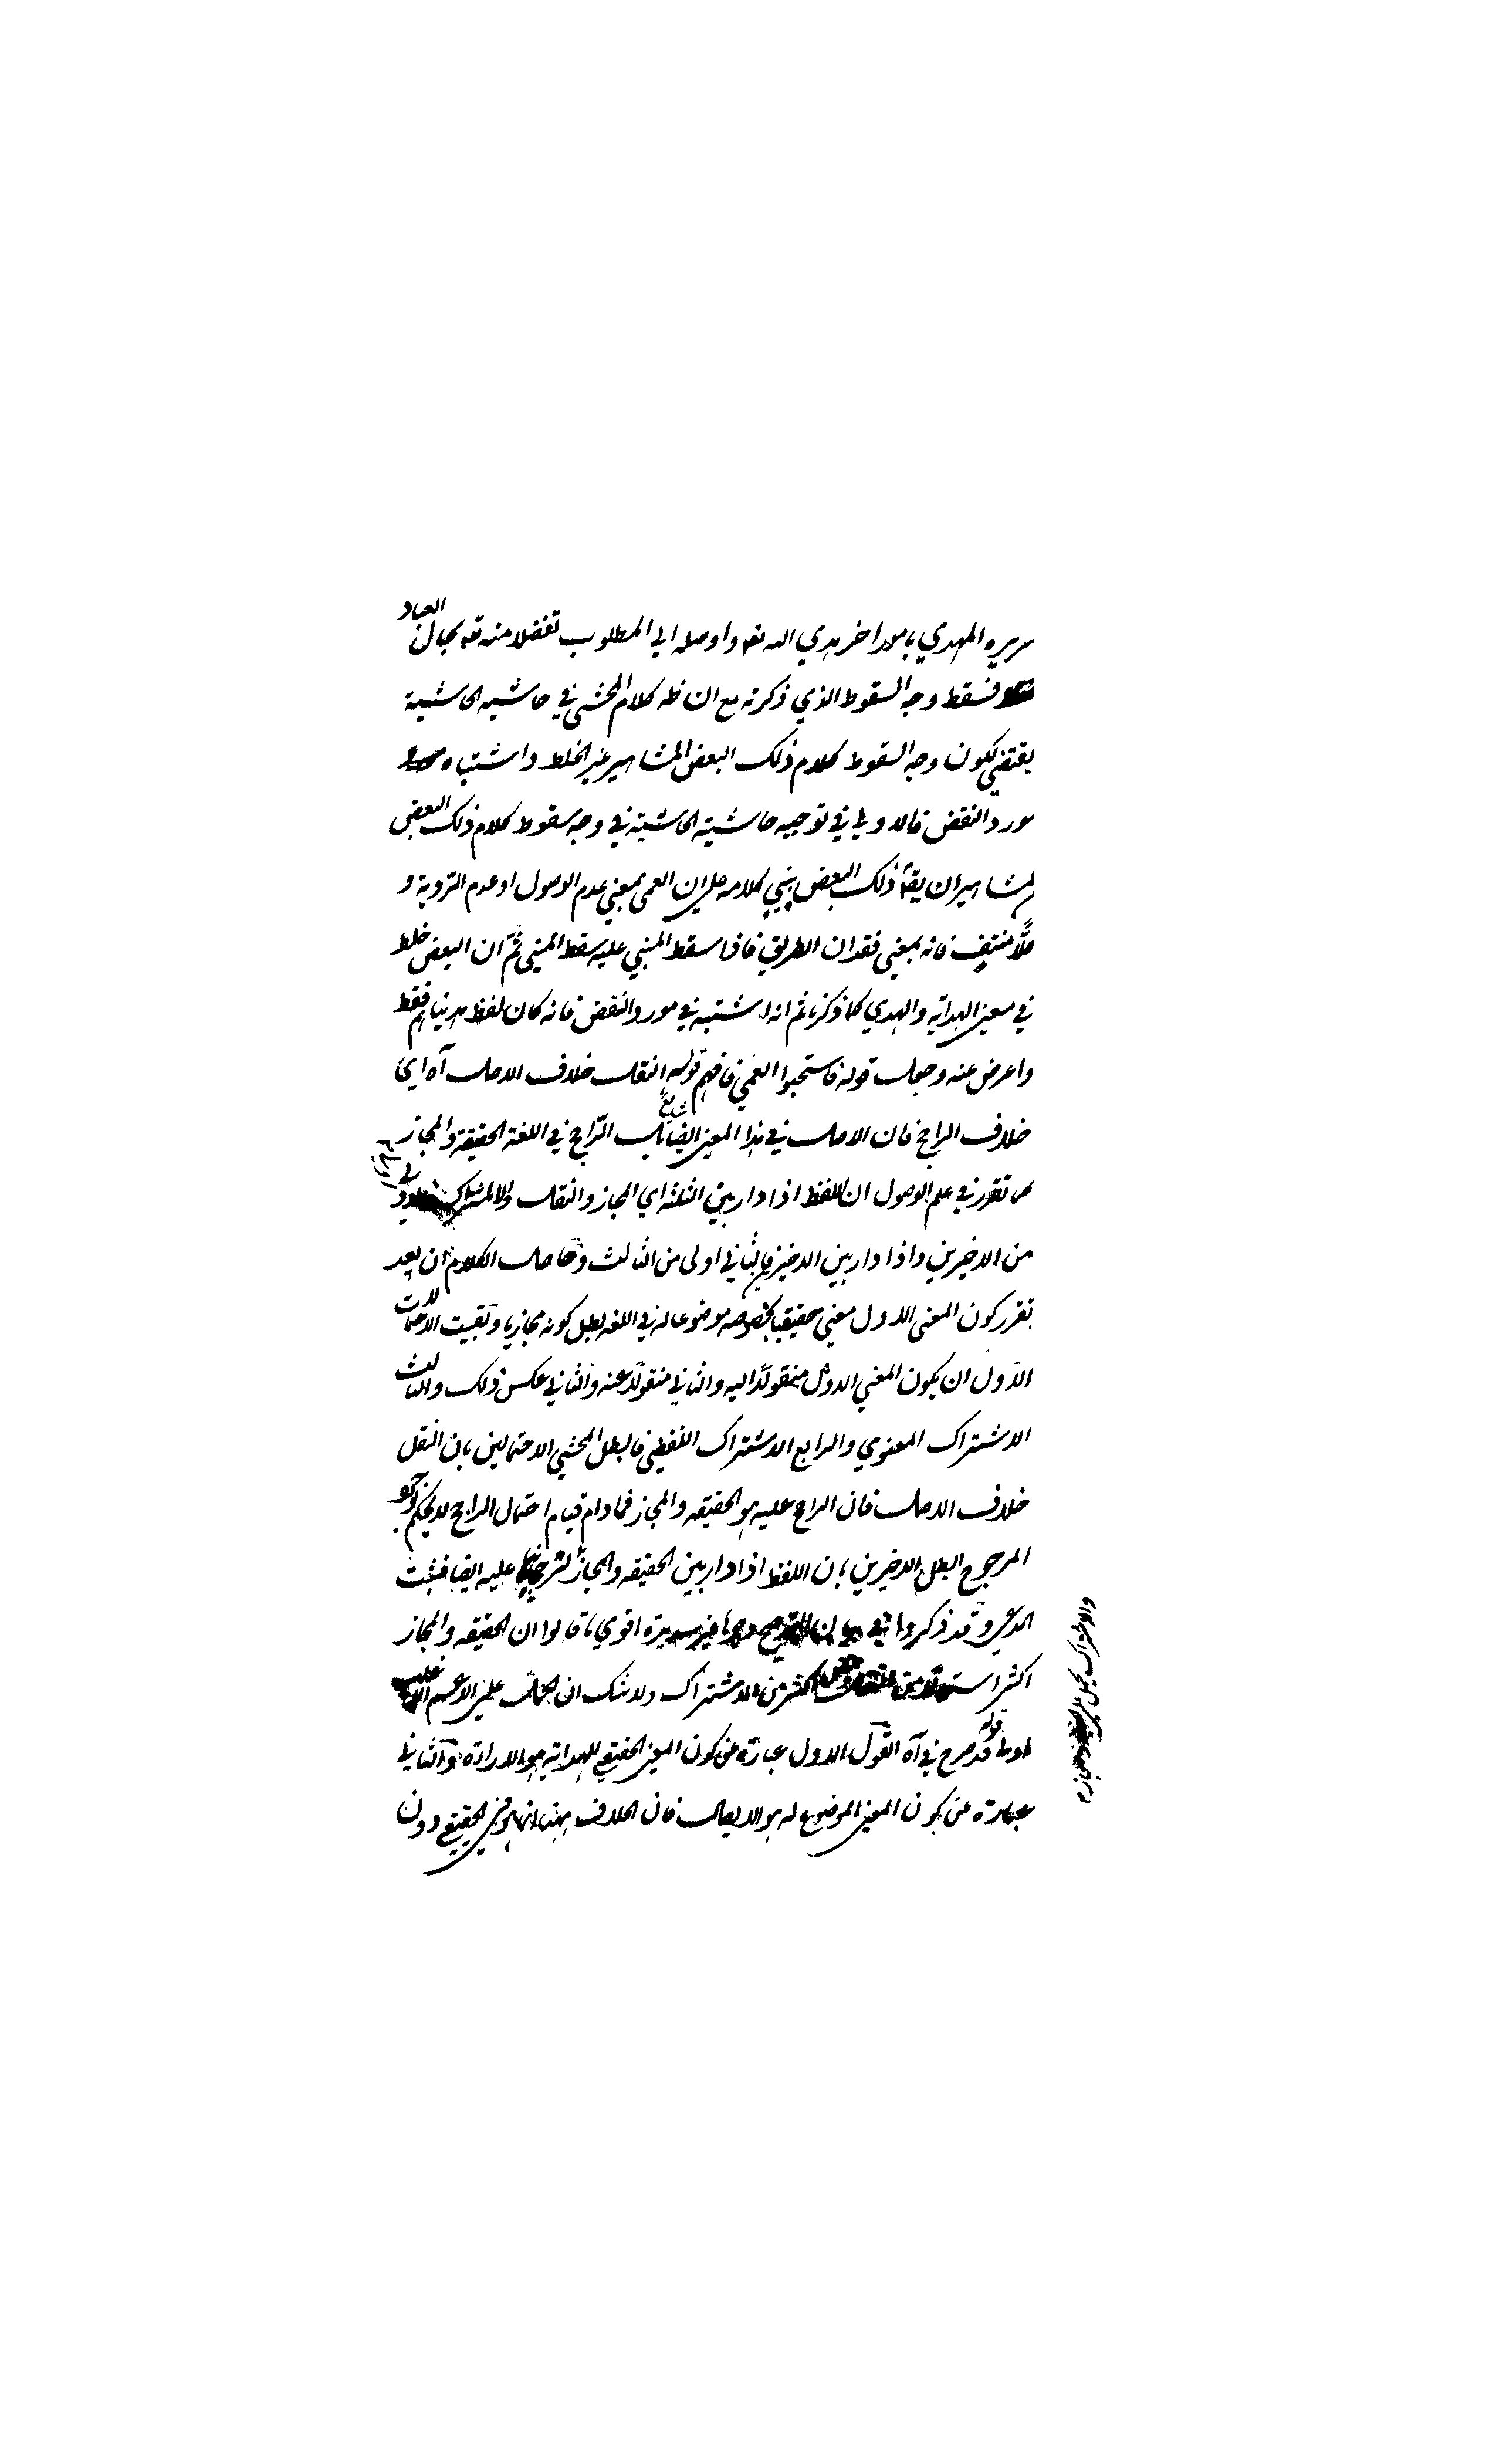 المهدي بامور اخر يهدي الله تعه واوصله الي المطلوب تفضلا منه تعه بحال العباد
فسقط وجه السقوط الذي ذكرته مع ان ظه كلام المحشي في حاشيه الحاشية
يقتضي لكون وجه السقوط كلام ذلك البعض المشاهير غير الخلط واشتباه
مورد النقض فالاولي في توجيه حاشيته الحاشيته في وجه سقوط كلام ذلك البعض
المشاهير ان يقه ذلك البعض يبني كلامه علي ان العمي بمعني عدم الوصول او عدم الرؤية و
كلا منتف فانه بمعني فقدان الطريق فاذا سقط المبني عليه سقط المبني ثم ان البعض خلط
في معني الهدايه والهدي كما ذكرنا ثم انه اشتبه في مورد النقض فانه كان لفظ هديناهم فقط
واعرض عنه وجعل قوله فاستحبوا العمي فافهم قوله النقل خلاف الاصل آه اي
خلاف الراجح فان الاصل في هذا المعني ايضا شايع الراجح في اللغة الحقيقة والمجاز
تقرر في علم الوصول ان اللفظ اذا دار بين الثلثه اي المجاز والنقل والاشتراك
من الاخيرين واذا دار بين الاخيرين فالثاني اولى من الثالث وحاصل الكلام ان بعد
تقرر كون المعني الاول معني حقيقيا بخصوصه موضوعا له في اللغه بطل كونه مجازيا وبقيت الاحتمالات
الاول ان يكون المعني الاول منقولا اليه والثاني منقولا عنه والثاني عكس ذلك والثالث
الاشتراك المعنوي والرابع الاشتراك اللفظي فابطل المحشي الاحتمالين بان النقل
خلاف الاصل فان الراجح عليه هو الحقيقه والمجاز فما دام قيام احتمال الراجح لا يحكم بوقوع
المرجوح ابطل الاخيرين بان اللفظ اذا دار بين الحقيقه والمجاز عليه ايضا فيثبت
المدعي وقد ذكروا في اقوي ما قالوا ان الحقيقه والمجاز
اكثر استعمالا من من الاشتراك ولا شك ان الحمل علي الاعم الاغلب
اولي قوله قد صرح في آه القول الاول عبارة عن كون المعني الحقيقي للهدايه هو الاراءة والثاني
عبارة عن كون المعني الموضوع له هو الايصال فان الخلاف بهنا انما هو في الحقيقي دون
والاشتراك